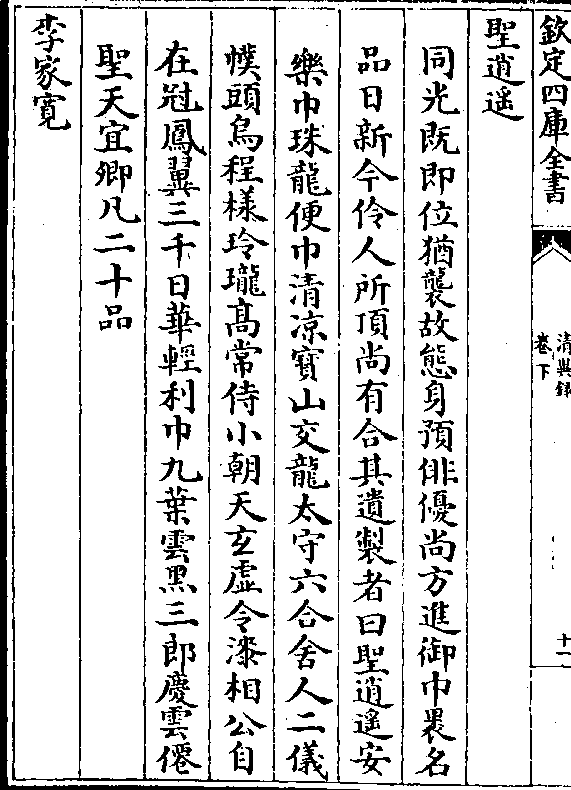 欽定四庫全書
清異錄
卷下
十一
聖逍遥
同光既即位猶襲故態身預俳優尚方進御巾褁名
品日新今伶人所頂尚有合其遺製者曰聖逍遥安
樂巾珠龍便巾清凉寳山交龍太守六合舍人二儀
幞頭烏程樣玲瓏髙常侍小朝天玄虛令漆相公自
在冠鳳翼三千日華輕利巾九葉雲黑三郎慶雲僊
聖天宜卿凡二十品
李家寛